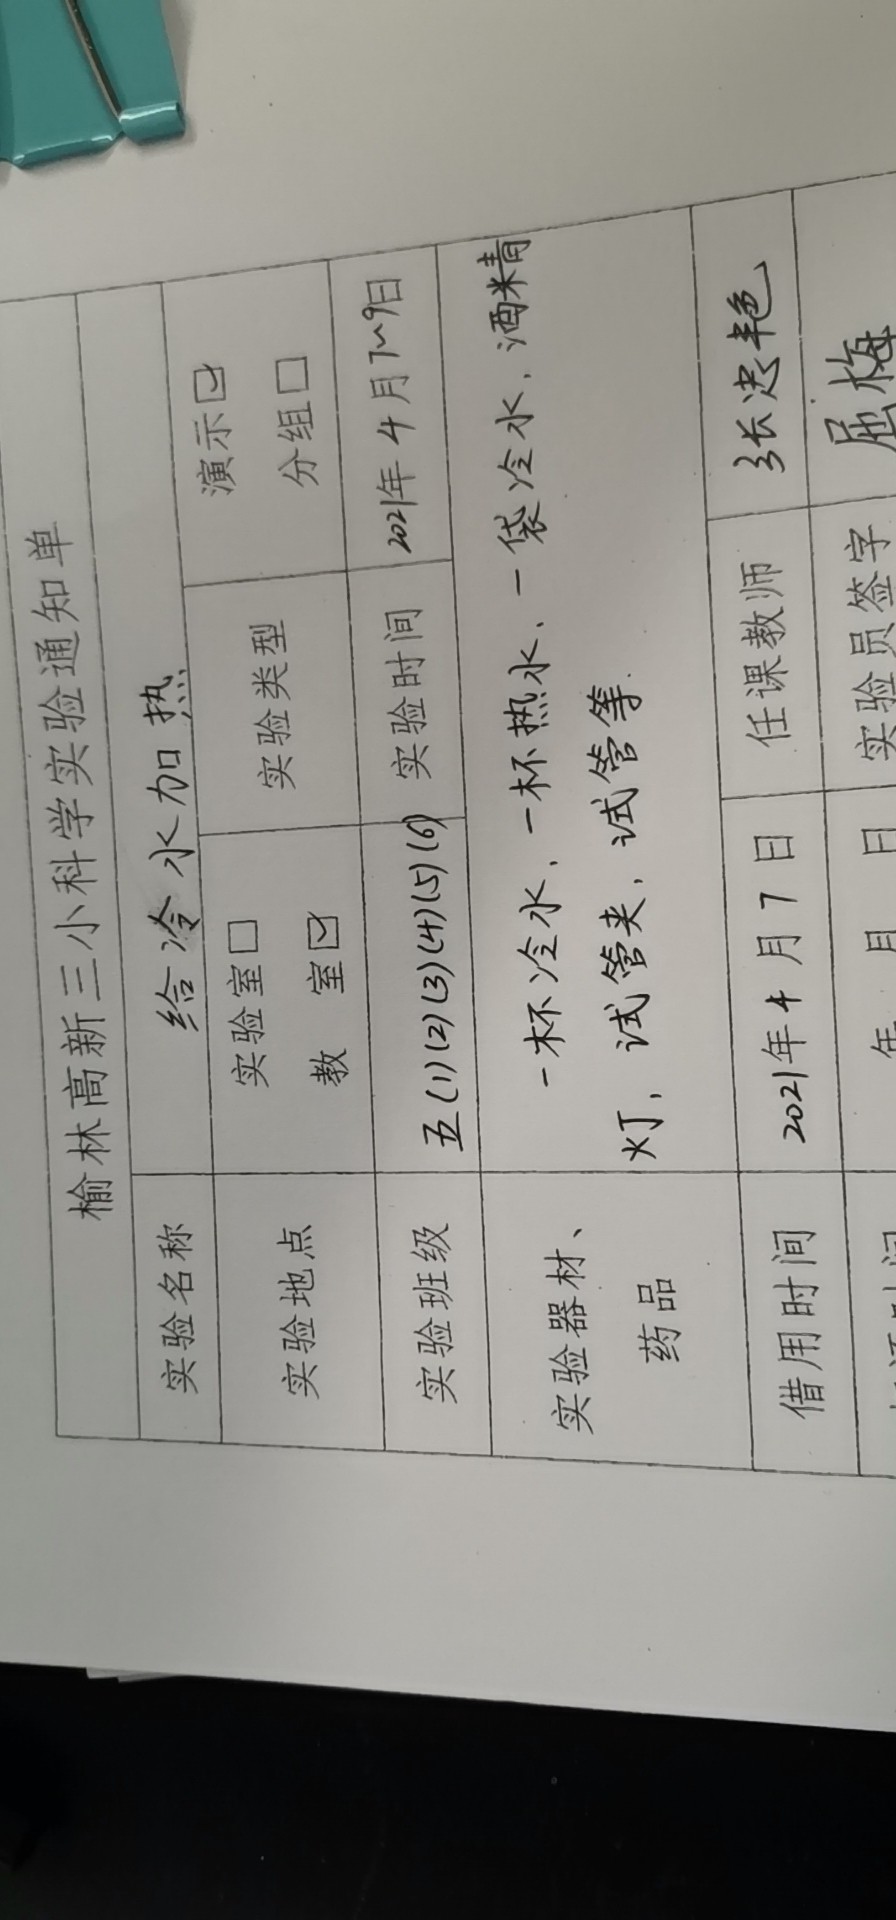 榆林高新三小科学实验通知单
实验名称 给冷水加热
实验地点 实验室☐ 教 室☑ 实验类型 演示☑ 分组☐
实验班级 五(1)(2)(3)(4)(5)(6) 实验时间 2021年4月7~9日
实验器材、药品 一杯冷水、一杯热水、一袋冷水、酒精
灯、试管夹、试管等.
借用时间 2021年4月7日 任课教师 张忠艳
年 月 日 实验员签字 屈梅